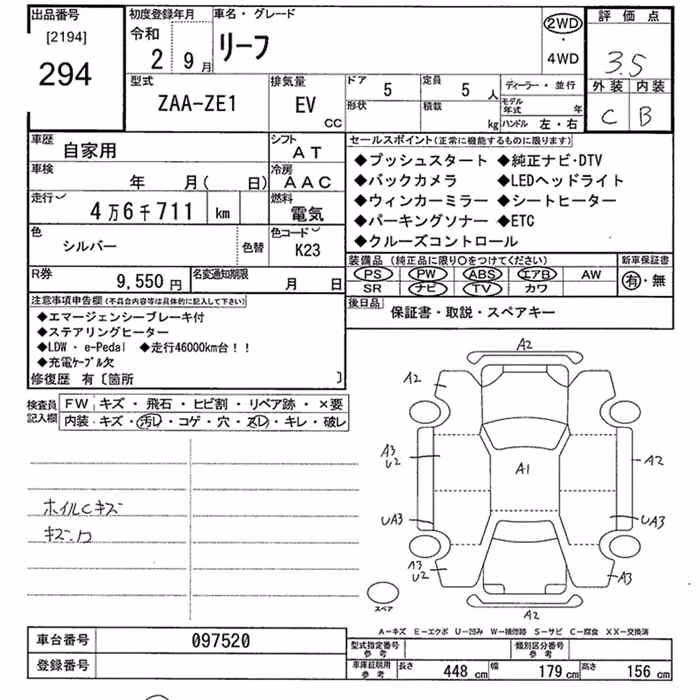 出品番号 初度登録年月 車名・グレード 評価点
[2194] 令和 2WD
294 2 9月 リーフ ・ 3.5
4WD
型式 排気量 ドア 5 定員 5人 ディーラー・並行 外装 内装
ZAA-ZE1 EV CC 形状 積載 kg モデル年式 年 C B
ハンドル 左・右
車歴 自家用 シフト AT セールスポイント(正常に機能するものに限ります)
車検 年 月( 日) 冷房 AAC ◆プッシュスタート ◆純正ナビ・DTV
走行 4万6千711 km 燃料 電気 ◆バックカメラ ◆LEDヘッドライト
色 シルバー 色替 色コード K23 ◆ウィンカーミラー ◆シートヒーター
◆パーキングソナー ◆ETC
◆クルーズコントロール
R券 9,550円 名変通知期限 月 日 装備品(純正品に限り○をつけてください) 新車保証書
PS PW ABS エアB AW 有・無
SR ナビ TV カワ
注意事項申告欄(不具合内容等は具体的に記入して下さい) 後日品 保証書・取説・スペアキー
◆エマージェンシーブレーキ付
◆ステアリングヒーター
◆LDW・e-Pedal ◆走行46000km台!!
◆充電ケーブル欠
修復歴 有〔箇所 〕
検査員記入欄 FW キズ・飛石・ヒビ割・リペア跡・×要
内装 キズ・汚レ・コゲ・穴・スレ・キレ・破レ
A2
A2
A3 U2 A1 A2
ホイルCキズ UA3 UA3
A3 U2 A3
スペア A2
A-キズ E-エクボ U-凹み W-補修跡 S-サビ C-腐食 XX-交換済
車台番号 097520 型式指定番号 参考 類別区分番号 参考
登録番号 車庫証明用 参考 長さ 448cm 幅 179cm 高さ 156cm